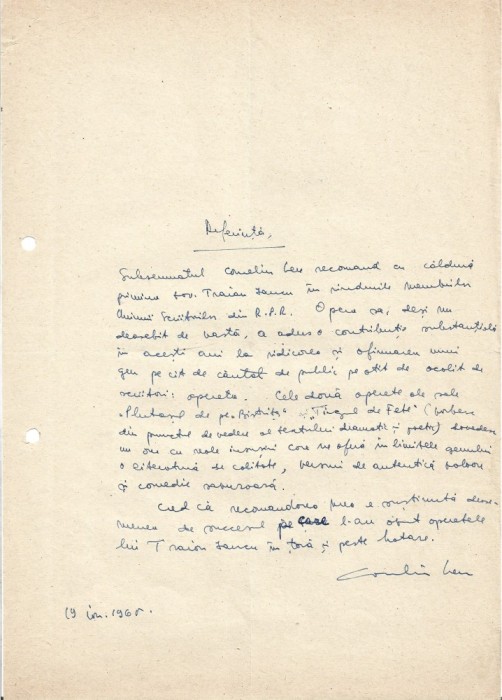 Referință,
Subsemnatul Corneliu Leu recomand cu căldură
primirea tov. Traian Iancu în rîndurile membrilor
Uniunii Scriitorilor din R.P.R. Opera sa, deși nu
deosebit de vastă, a adus o contribuție substanțială
în acești ani la ridicarea și afirmarea unui
gen pe cît de căutat de public pe atît de ocolit de
scriitori: opereta. Cele două operete ale sale
"Plutașul de pe Bistrița" și "Tîrgul de Fete" (vorbesc
din punctul de vedere al textului dramatic și poetic) dovedesc
un om cu reale însușiri care ne oferă în limitele genului
o literatură de calitate, versuri de autentică valoare
și comedie savuroasă.
Cred că recomandarea mea e susținută de
de succesul pe care l-au avut operetele
lui Traian Iancu în țară și peste hotare.
Corneliu Leu
19 ian. 1965.